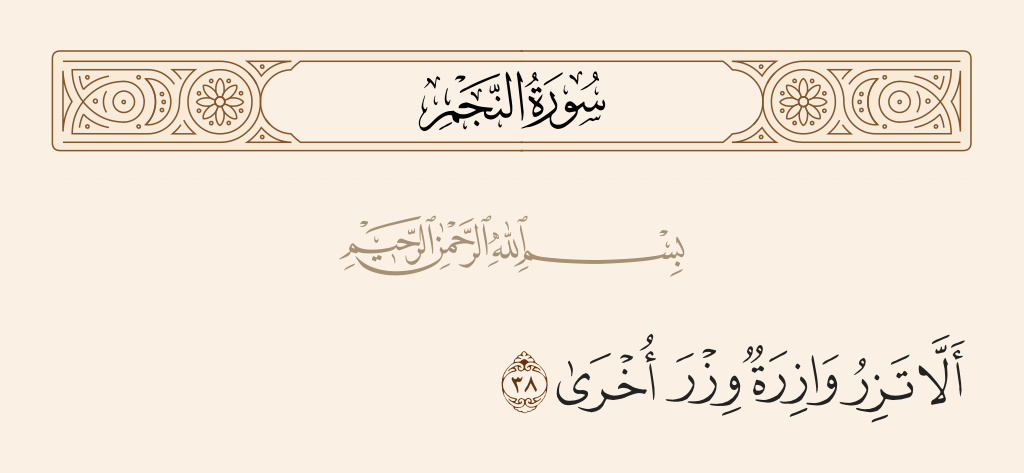 سُورَةُ النَّجْمِ
بِسْمِ ٱللَّهِ ٱلرَّحْمَٰنِ ٱلرَّحِيمِ
أَلَّا تَزِرُ وَازِرَةٌ وِزْرَ أُخْرَىٰ ٣٨